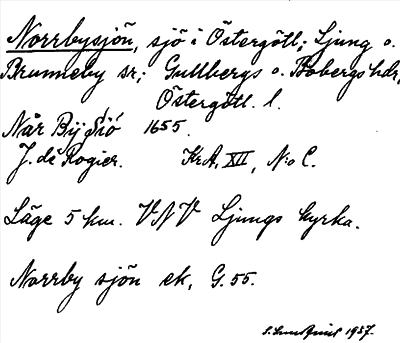 Norrbysjön, sjö i Östergötl; Ljung o.
Brunneby sr; Gullbergs o. Bobergs hdr,
Östergötl. l.
Når Bÿ Siö 1655.
J. de Rogier. Kr.A. XII, N:o C.
Läge 5 km. VNV Ljungs kyrka.
Norrby sjön ek, G. 55.
1937.